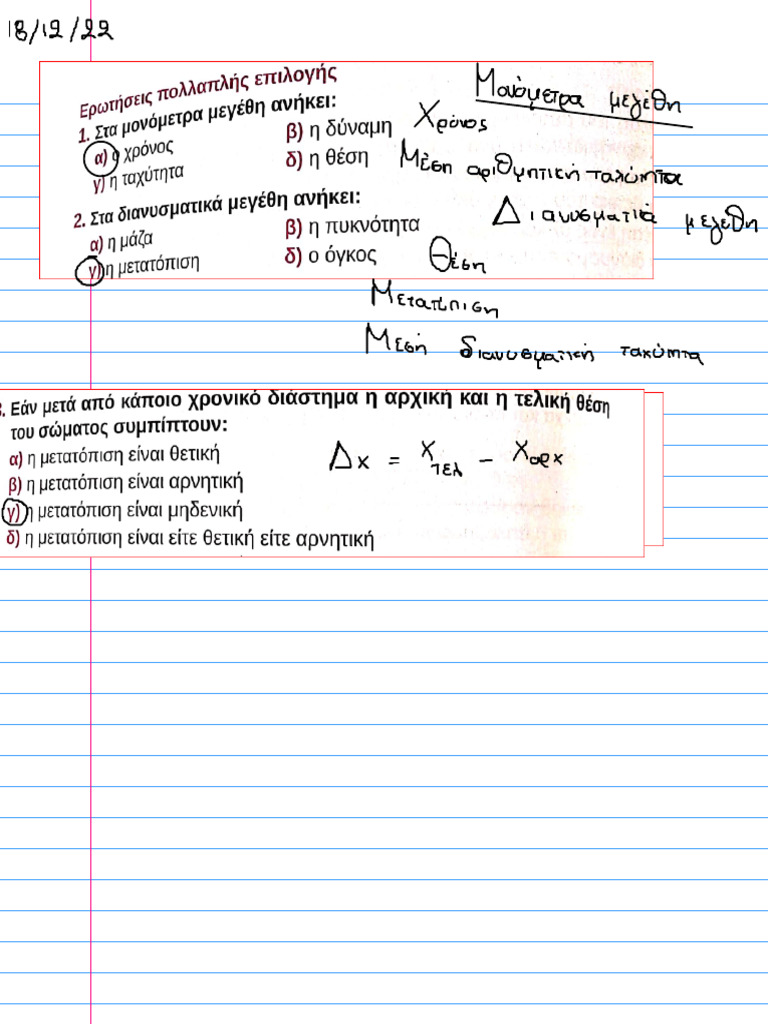 18/12/22
Ερωτήσεις πολλαπλής επιλογής
1. Στα μονόμετρα μεγέθη ανήκει:
α) ο χρόνος β) η δύναμη
γ) η ταχύτητα δ) η θέση
2. Στα διανυσματικά μεγέθη ανήκει:
α) η μάζα β) η πυκνότητα
γ) η μετατόπιση δ) ο όγκος
Μονόμετρα μεγέθη
Χρόνος
Μέση αριθμητική ταχύτητα
Διανυσματικά μεγέθη
Θέση
Μετατόπιση
Μέση διανυσματική ταχύτητα
3. Εάν μετά από κάποιο χρονικό διάστημα η αρχική και η τελική θέση
του σώματος συμπίπτουν:
α) η μετατόπιση είναι θετική
β) η μετατόπιση είναι αρνητική
γ) η μετατόπιση είναι μηδενική
δ) η μετατόπιση είναι είτε θετική είτε αρνητική
Δx = x τελ - x αρχ